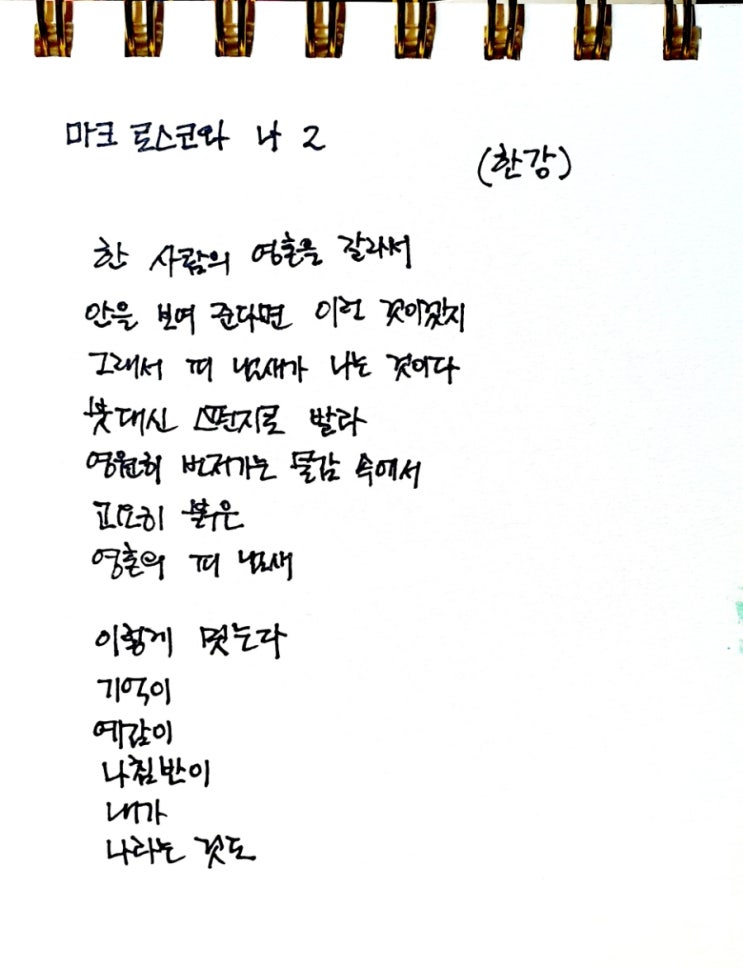 마크 로스코와 나 2
(한강)
한 사람의 영혼을 갈라서
안을 보여 준다면 이런 것이겠지
그래서 피 냄새가 나는 것이다
붓대신 스펀지로 발라
영원히 번져가는 물감 속에서
고요히 붉은
영혼의 피 냄새
이렇게 멎는다
기억이
예감이
나침반이
내가
나라는 것도